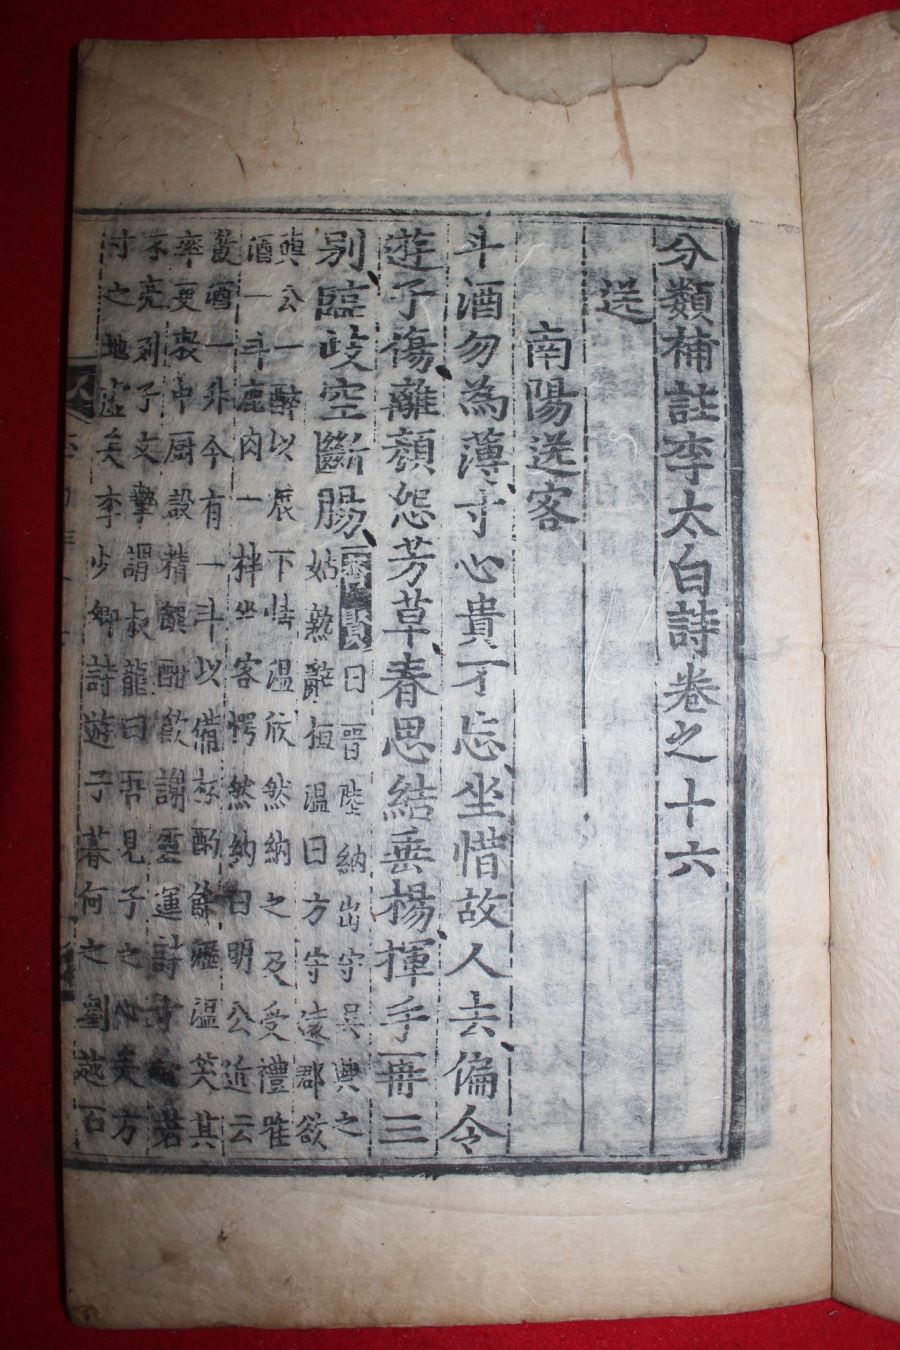 分類補註李太白詩卷之十六
送
南陽送客
斗酒勿為薄寸心貴不忘坐惜故人去偏令
遊子傷離顔怨芳草春思結垂楊揮手再三
别臨歧空斷腸
齊賢曰晋陸納出守吳興之
姑熟辭桓温曰方守遠郡欲
與公一醉以展下情温欣然納之及受禮唯
酒一斗鹿肉一拌坐客愕然納曰明公近云
飲酒一升今有一斗以備杯酌餘瀝温笑其
率更中厨設精饌酣歓謝靈運詩寸心若
不亮列子文摯謂叔龍曰吾見子之心矣方
寸之地虛矣李少卿詩遊子暮何之劉越石